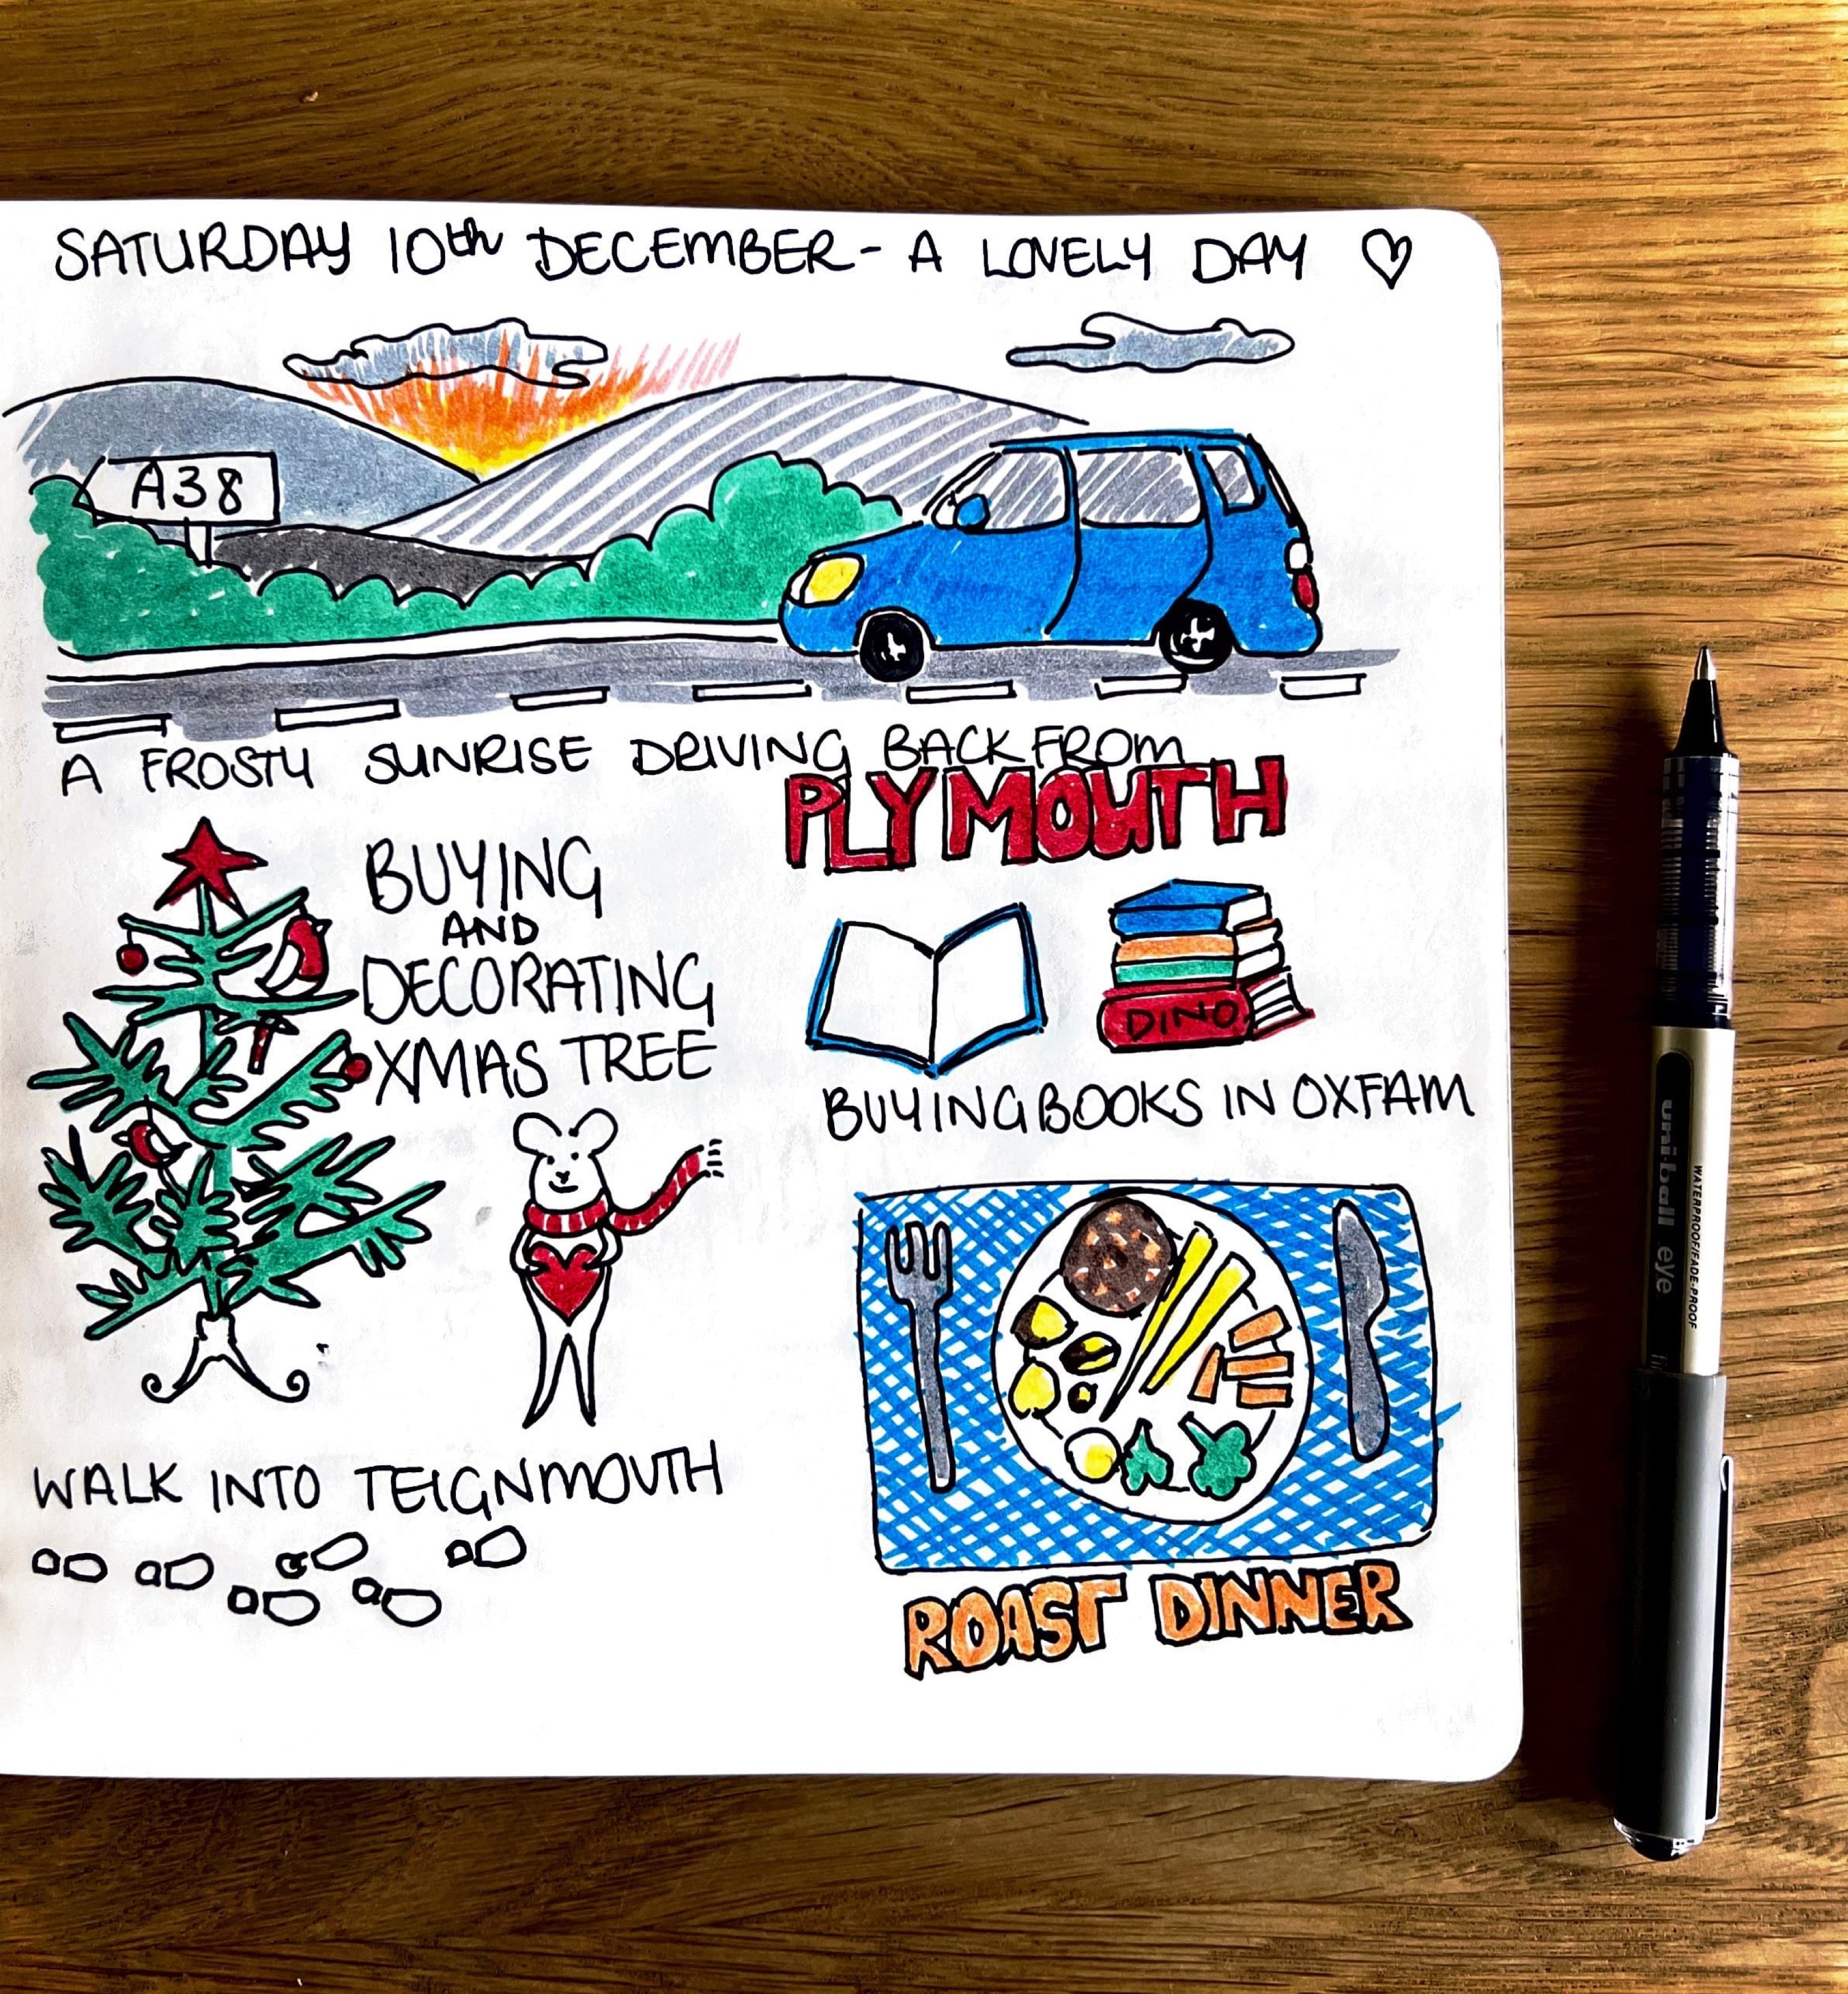 SATURDAY 10th DECEMBER - A LOVELY DAY ♡
A38
A FROSTY SUNRISE DRIVING BACK FROM
PLYMOUTH
BUYING
AND
DECORATING
XMAS TREE
DINO
BUYING BOOKS IN OXFAM
WALK INTO TEIGNMOUTH
ROAST DINNER
uni-ball eye
WATERPROOF/FADE-PROOF